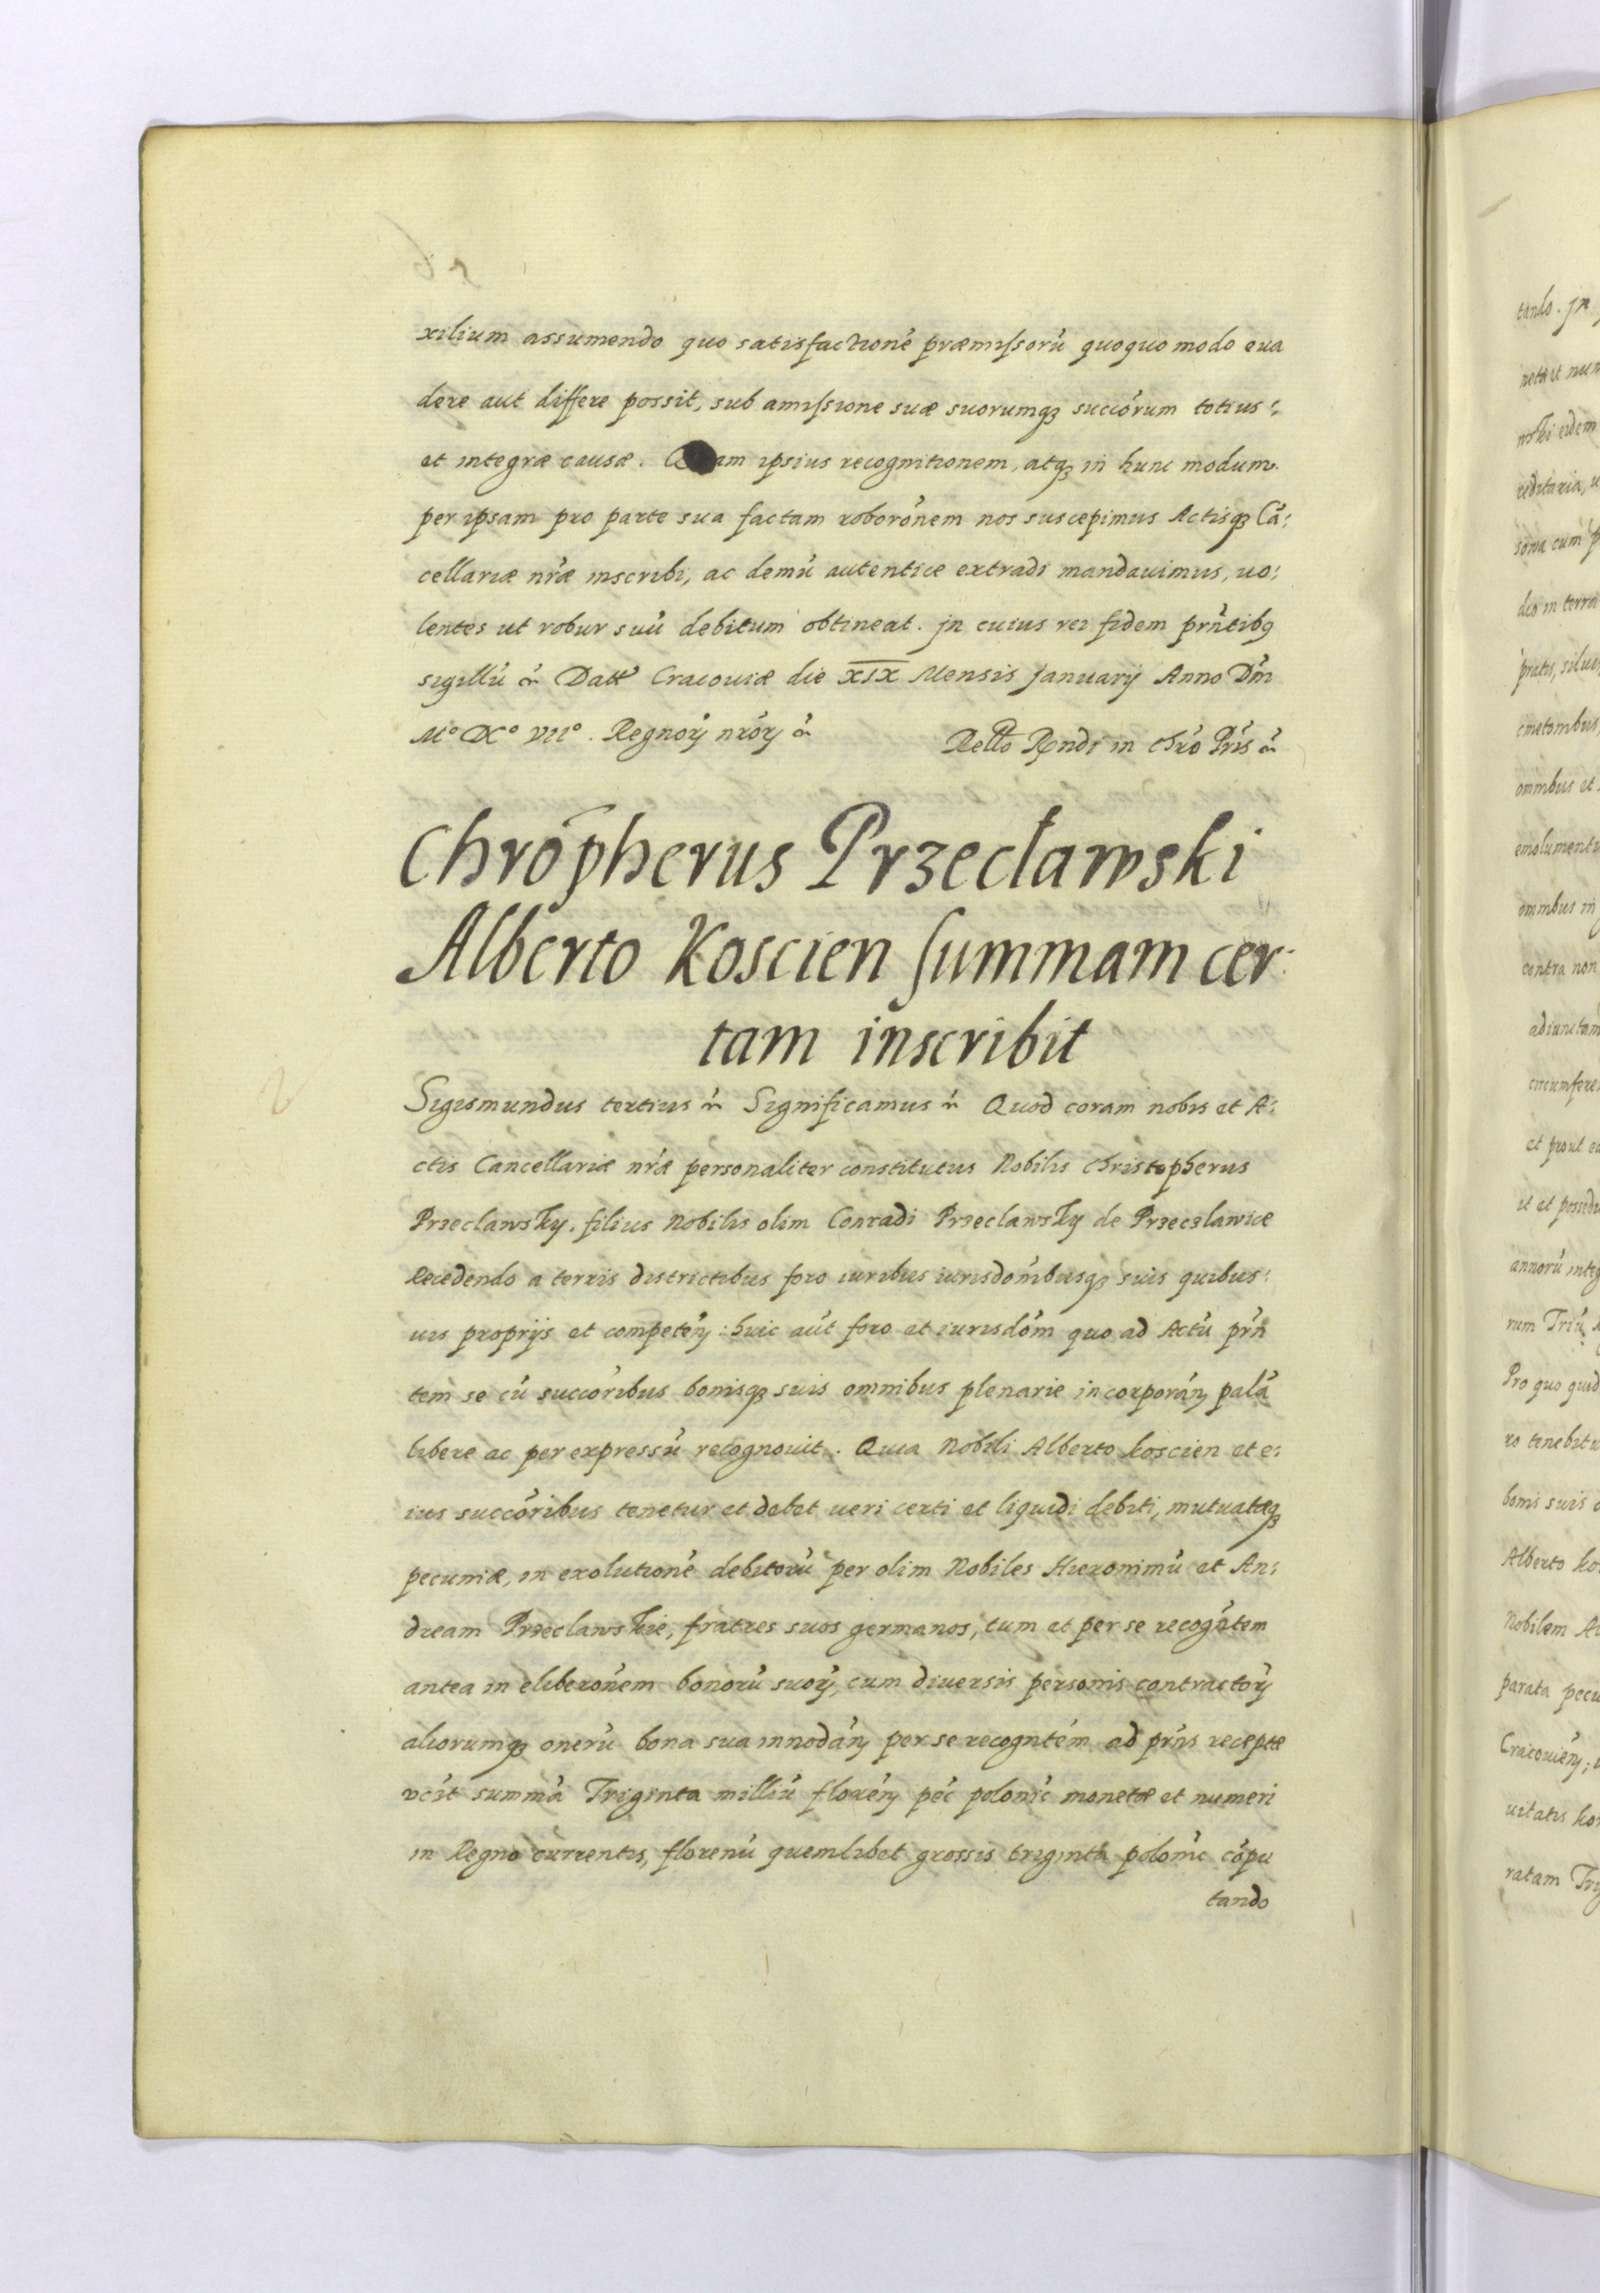 xilium assumendo quo satisfactionē præmissorū quoquo modo eua
dere aut differe possit, sub amissione suæ suorumq3 succōrum totius
et integræ causæ. Q am ipsius recognitionem, atq3 in hunc modum
per ipsam pro parte sua factam roborōnem nos suscepimus Actisq3 Cā:
cellariæ nr̄æ inscribi, ac demū autentice extradi mandauimus, uo:
lentes ut robur suū debitum obtineat. Jn cuius rei fidem prn̄tibq
sigillū Datt Cracouiæ die XIX Mensis Januarij Anno Dn̄i
M° DC° VII°. Regnorȳ nrōrȳ Rellō Rn̄di in Chrō Pr̄is
Chrōpherus Przecławski
Alberto Koscien summam cer:
tam inscribit
Sigismundus tertius Significamus Quod coram nobis et A:
ctis Cancellariæ nr̄æ personaliter constitutus Nobilis Christopherus
Przeclawsky, filius Nobilis olim Conradi Przeclawsky de Przeczlawice
Recedendo a terris districtibus foro iuribus iurisdōnibusq3 suis quibus:
uis proprijs et competēn: huic aūt foro et iurisdōni quo ad Actū prn̄
tem se cū succōribus bonisq3 suis omnibus plenarie incorporān palā
libere ac per expressū recognouit. Quia Nobili Alberto Koscien et e:
ius succōribus tenetur et debet ueri certi et liquidi debiti, mutuatæq3
pecuniæ, in exolutionē debitorū per olim Nobiles Hieronimū et An:
dream Przeclawskie, fratres suos germanos, tum et per se recogn̄tem
antea in eliberōnem bonorū suorȳ, cum diuersis personis contractorȳ
aliorumq3 onerū bona sua innodān per se recogntēm ad prn̄s receptæ
vcīt summā Triginta milliū florēn pēc polonīc monetæ et numeri
in Regno currentis, florenū quemlibet grossis triginta polonīc cōpu
tando